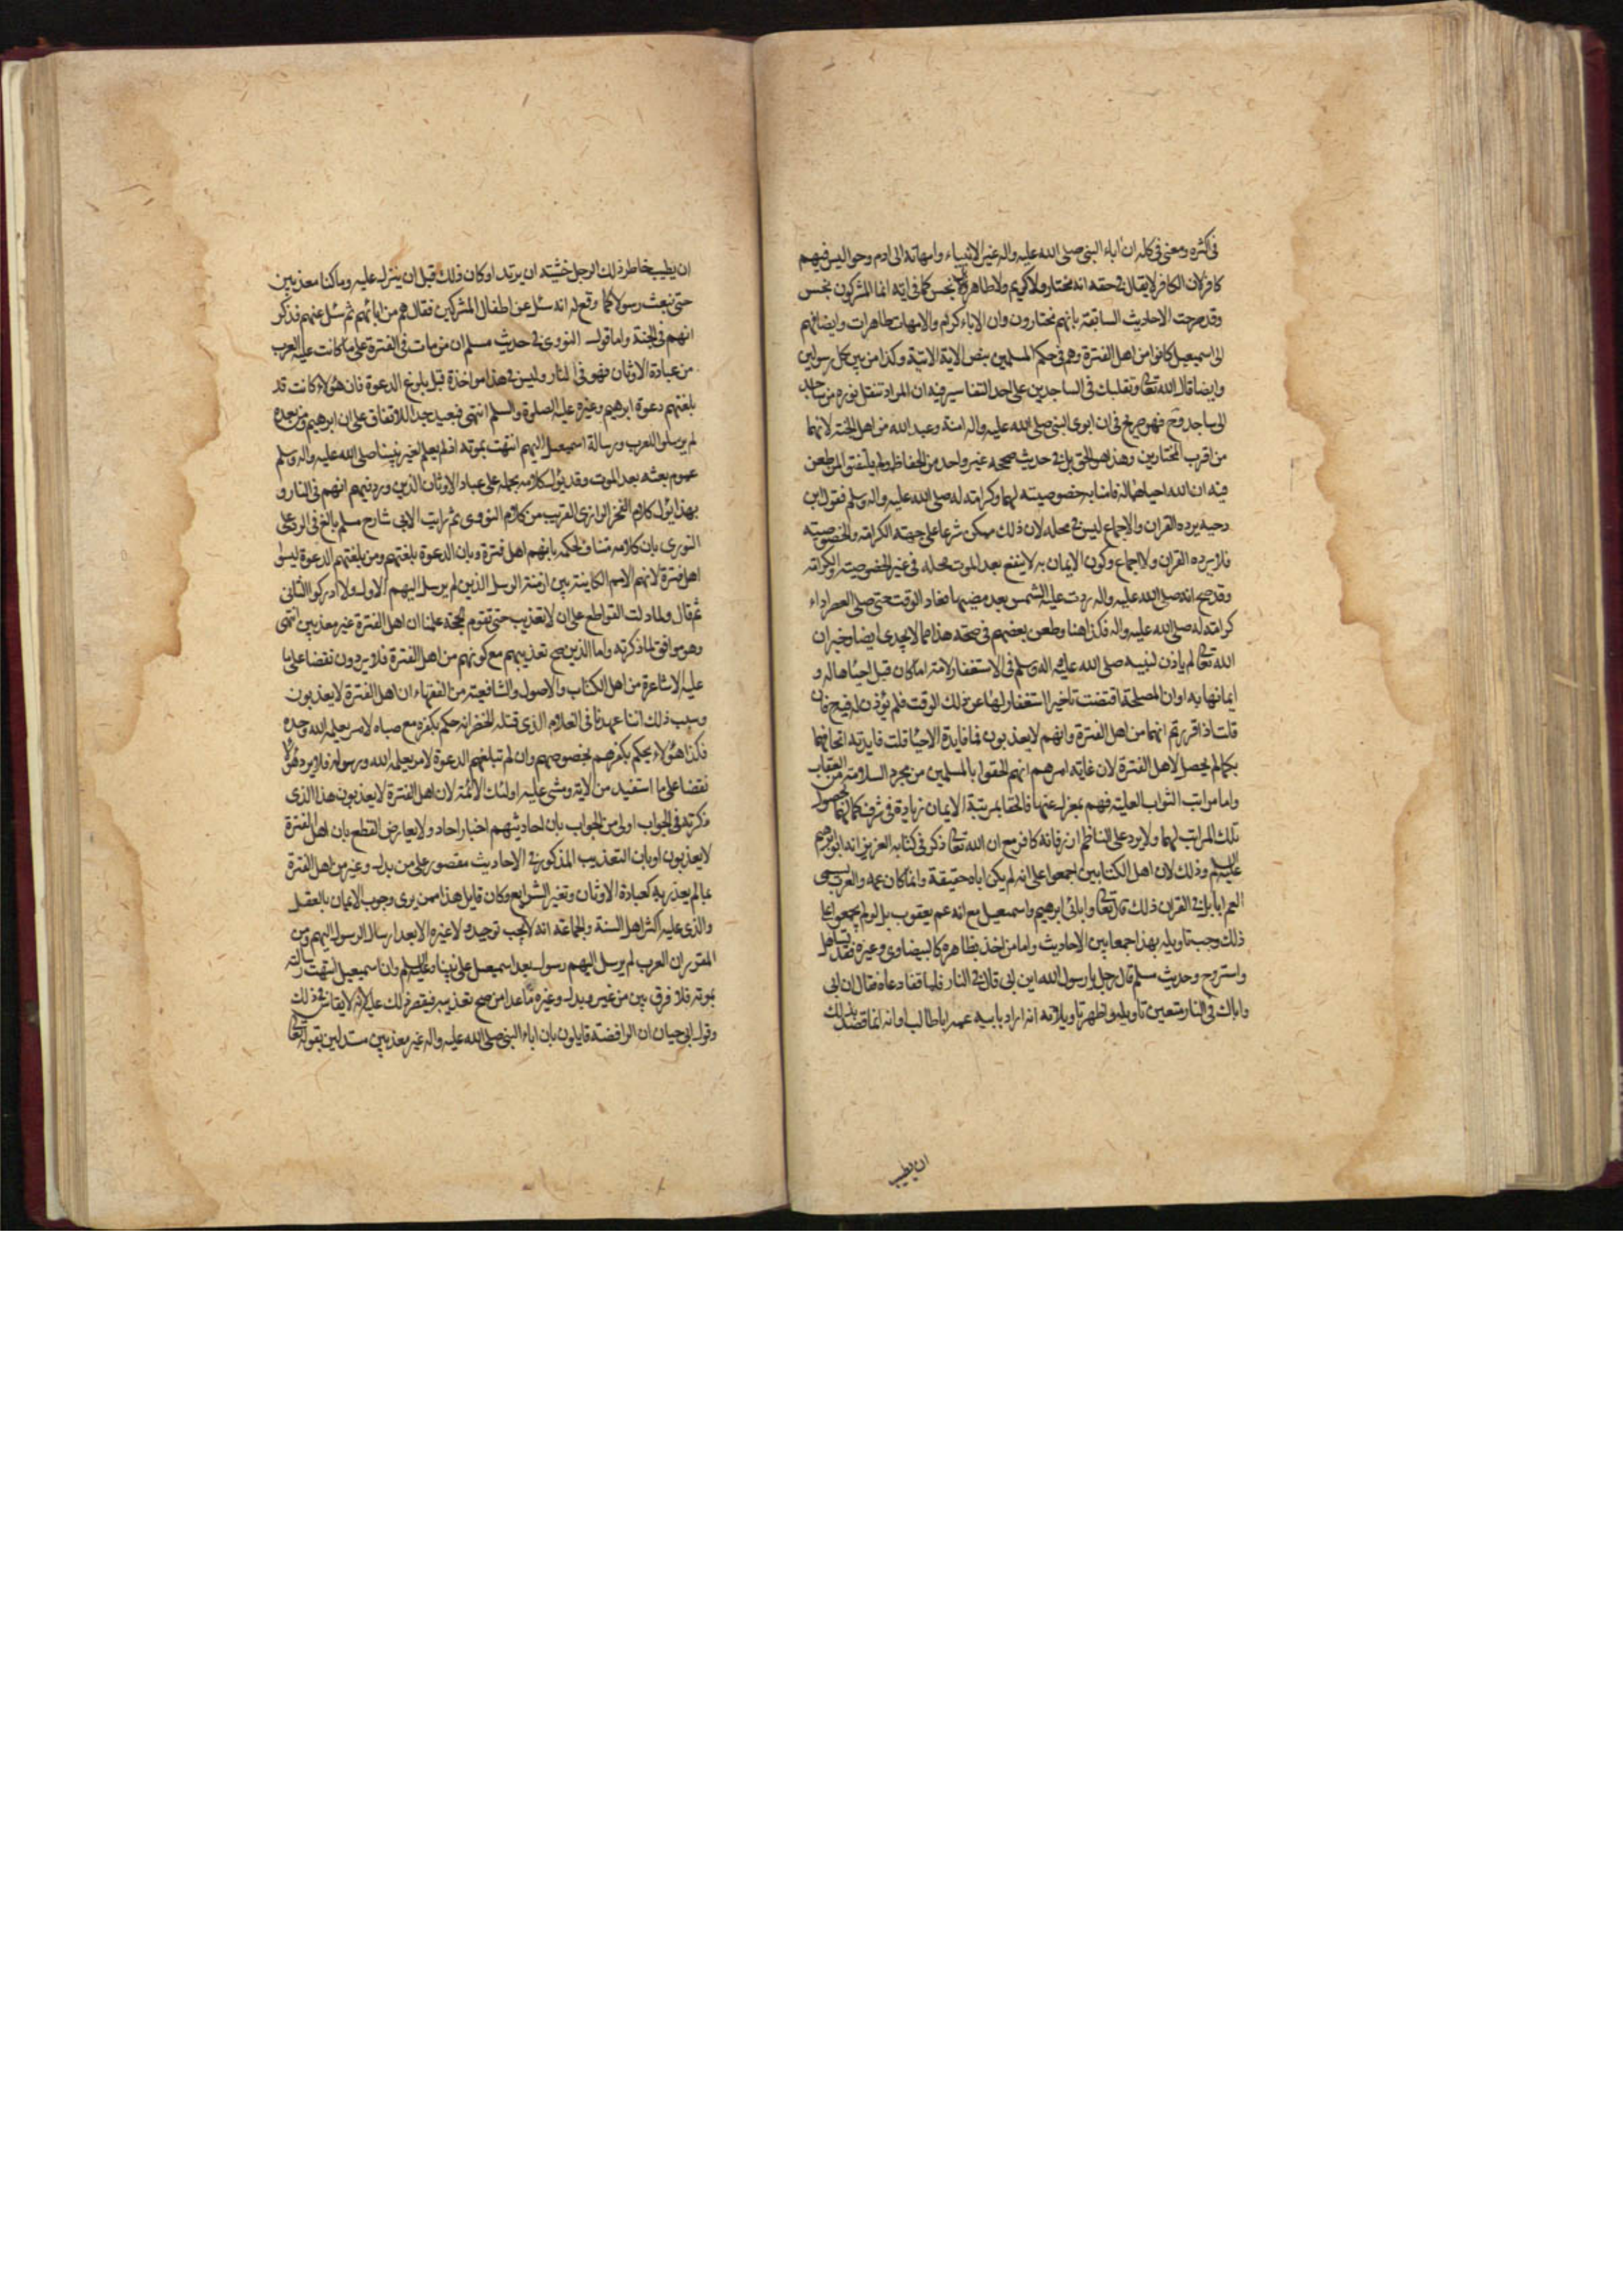 في كثره ومعنى في كله ان اباء النبي صلى الله عليه واله غير الانبياء وامهاته الى ادم وحوا ليس فيهم
كافر لان الكافر لا يقال في حقه انه مختار ولا كريم ولا طاهر بل نجس كما في اية انما المشركون نجس
وقد صرحت الاحاديث السابقة بانهم مختارون وان الاباء كرام والامهات طاهرات وايضا فهم
الى اسمعيل كانوا من اهل الفترة وهم في حكم المسلمين بنص الاية الاتية وكذا من بين كل رسولين
وايضا قال الله تعالى وتقلبك في الساجدين على احد التفاسير فيه ان المراد تنقل نوره من ساجد
الى ساجد وح فهو صريح في ان ابوي النبي صلى الله عليه واله امنة وعبد الله من اهل الجنة لانهما
من اقرب المختارين وهذا هو الحق بل في حديث صححه غير واحد من الحفاظ ولم يلتفتوا لمن طعن
فيه ان الله احياهما له فامنا به خصوصية لهما وكرامة له صلى الله عليه واله وسلم فقول ابن
دحية يرده القران والاجماع ليس في محله لان ذلك ممكن شرعا على جهة الكرامة والخصوصية
فلا يرده القران ولا اجماع وكون الايمان به لا ينفع بعد الموت محله في غير الخصوصية والكرامة
وقد صح انه صلى الله عليه واله ردت عليه الشمس بعد مغيبها فعاد الوقت حتى صلى العصر اداء
كرامة له صلى الله عليه واله فكذا هنا وطعن بعضهم في صحة هذا مما لا يجدي ايضا وخبر ان
الله تعالى لم ياذن لنبيه صلى الله عليه واله وسلم في الاستغفار لامه اما كان قبل احياها له و
ايمانها به او ان المصلحة اقتضت تاخير الستغفار لها عن ذلك الوقت فلم يؤذن له فيح فان
قلت اذا قررتم انهما من اهل الفترة وانهم لا يعذبون فما فايدة الاحيا قلت فايدته اتحافهما
بكمالم يحصل لاهل الفترة لان غاية امرهم انهم الحقوا بالمسلمين من مجرد السلامة من العقاب
واما مراتب الثواب العلية فهم بمعزل عنها فالحقا بمرتبة الايمان زيادة في شرف كمالهما لحصول
تلك المراتب لهما ولا يرد على الناظم ازر فانه كافر مع ان الله تعالى ذكر في كتابه العزيز انه ابو ابرهيم
عليه السلام وذلك لان اهل الكتابين اجمعوا على انه لم يكن اباه حقيقة وانما كان عمه والعرب تسمى
العم ابا بل في القران ذلك قال تعالى وابائي ابرهيم واسمعيل مع انه عم يعقوب بل لو لم يجمعوا على
ذلك وجب تاويله بهذا جمعا بين الاحاديث واما من اخذ بظاهره كالبيضاوي وغيره فقد تساهل
واستروح وحديث مسلم قال رجل يا رسول الله اين ابي قال في النار فلما قفا دعاه فقال ان ابي
واباك في النار يتعين تاويله واظهر تاويلاته انه اراد بابيه عمه ابا طالب وانه انما قصد بذلك
ان يطيب
ان يطيب خاطر ذلك الرجل خشية ان يرتد او كان ذلك قبل ان ينزل عليه وما كنا معذبين
حتى نبعث رسولا كما وقع له انه سئل عن اطفال المشركين فقال هم من ابائهم ثم سئل عنهم فذكر
انهم في الجنة واما قول النووي في حديث مسلم ان من مات في الفترة على ما كانت عليه العرب
من عبادة الاوثان فهو في النار وليس في هذا مواخذة قبل بلوغ الدعوة فان هؤلاء كانت قد
بلغتهم دعوة ابرهيم وغيره عليه الصلوة والسلم انتهى فبعيد جدا للاتفاق على ان ابرهيم ومن بعده
لم يرسلوا للعرب ورسالة اسمعيل اليهم انتهت بموته اذ لم يعلم لغير نبينا صلى الله عليه واله وسلم
عموم بعثه بعد الموت وقد يؤل كلامه بحمله على عباد الاوثان الذين ورد فيهم انهم في النار و
بهذا يؤل كلام الفخر الرازي القريب من كلام النووي ثم رايت الابي شارح مسلم بالغ في الرد على
النووي بان كلامه متناف لحكمه بانهم اهل فترة وبان الدعوة بلغتهم ومن بلغتهم الدعوة ليسوا
اهل فترة لانهم الامم الكاينة بين ازمنة الرسل الذين لم يرسل اليهم الاول ولا ادركوا الثاني
ثم قال ولما دلت القواطع على ان لا تعذيب حتى تقوم الحجة علمنا ان اهل الفترة غير معذبين انتهى
وهو موافق لما ذكرته واما الذين صح تعذيبهم مع كونهم من اهل الفترة فلا يردون نقضا على ما
عليه الاشاعرة من اهل الكتاب والاصول والشافعية من الفقهاء ان اهل الفترة لا يعذبون
وسبب ذلك اننا عهدنا في الغلام الذي قتله الخضر انه حكم بكفره مع صباه لامر يعلمه الله وحده
فكذا هؤلاء يحكم بكفرهم بخصوصهم وان لم تبلغهم الدعوة لامر يعلمه الله ورسوله فلا يرد هؤلاء
نقضا على ما استفيد من الاية ومشى عليه اولئك الائمة لان اهل الفترة لا يعذبون هذا الذي
ذكرته في الجواب اولى من الجواب بان احاديثهم اخبار احاد ولا يعارض القطع بان اهل الفترة
لا يعذبون او بان التعذيب المذكور في الاحاديث مقصور على من بدل وغير من اهل الفترة
بما لم يعذر به كعبادة الاوثان وتغير الشرايع وكان قايل هذا ممن يرى وجوب الايمان بالعقل
والذي عليه اكثر اهل السنة والجماعة انه لا يجب توحيد ولا غيره الا بعد ارسال الرسول اليهم ومن
المقرر ان العرب لم يرسل اليهم رسول بعد اسمعيل على نبينا وعليه السلم وان اسمعيل انتهت رسالته
بموته فلا فرق بين من غير وبدل وغيره ما عدا من صح تعذيبه فيقصر ذلك عليه لانه لا يقاس في ذلك
وقول ابي حيان ان الرافضة قايلون بان اباء النبي صلى الله عليه واله غير معذبين مستدلين بقوله تعالى